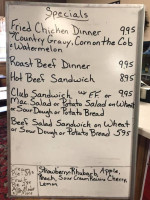 Specials
Fried Chicken Dinner 995
w/Country Gravy, Corn on the Cob
+ Watermelon
Roast Beef Dinner 995
Hot Beef Sandwich 895
Club Sandwich w/ FF or 995
Mac Salad or Potato Salad on Wheat
or Sour Dough or Potato Bread
Beef Salad Sandwich on Wheat
or Sour Dough or Potato Bread 595
Strawberry-Rhubarb, Apple,
Peach, Sour Cream Raisin, Cherry,
Lemon